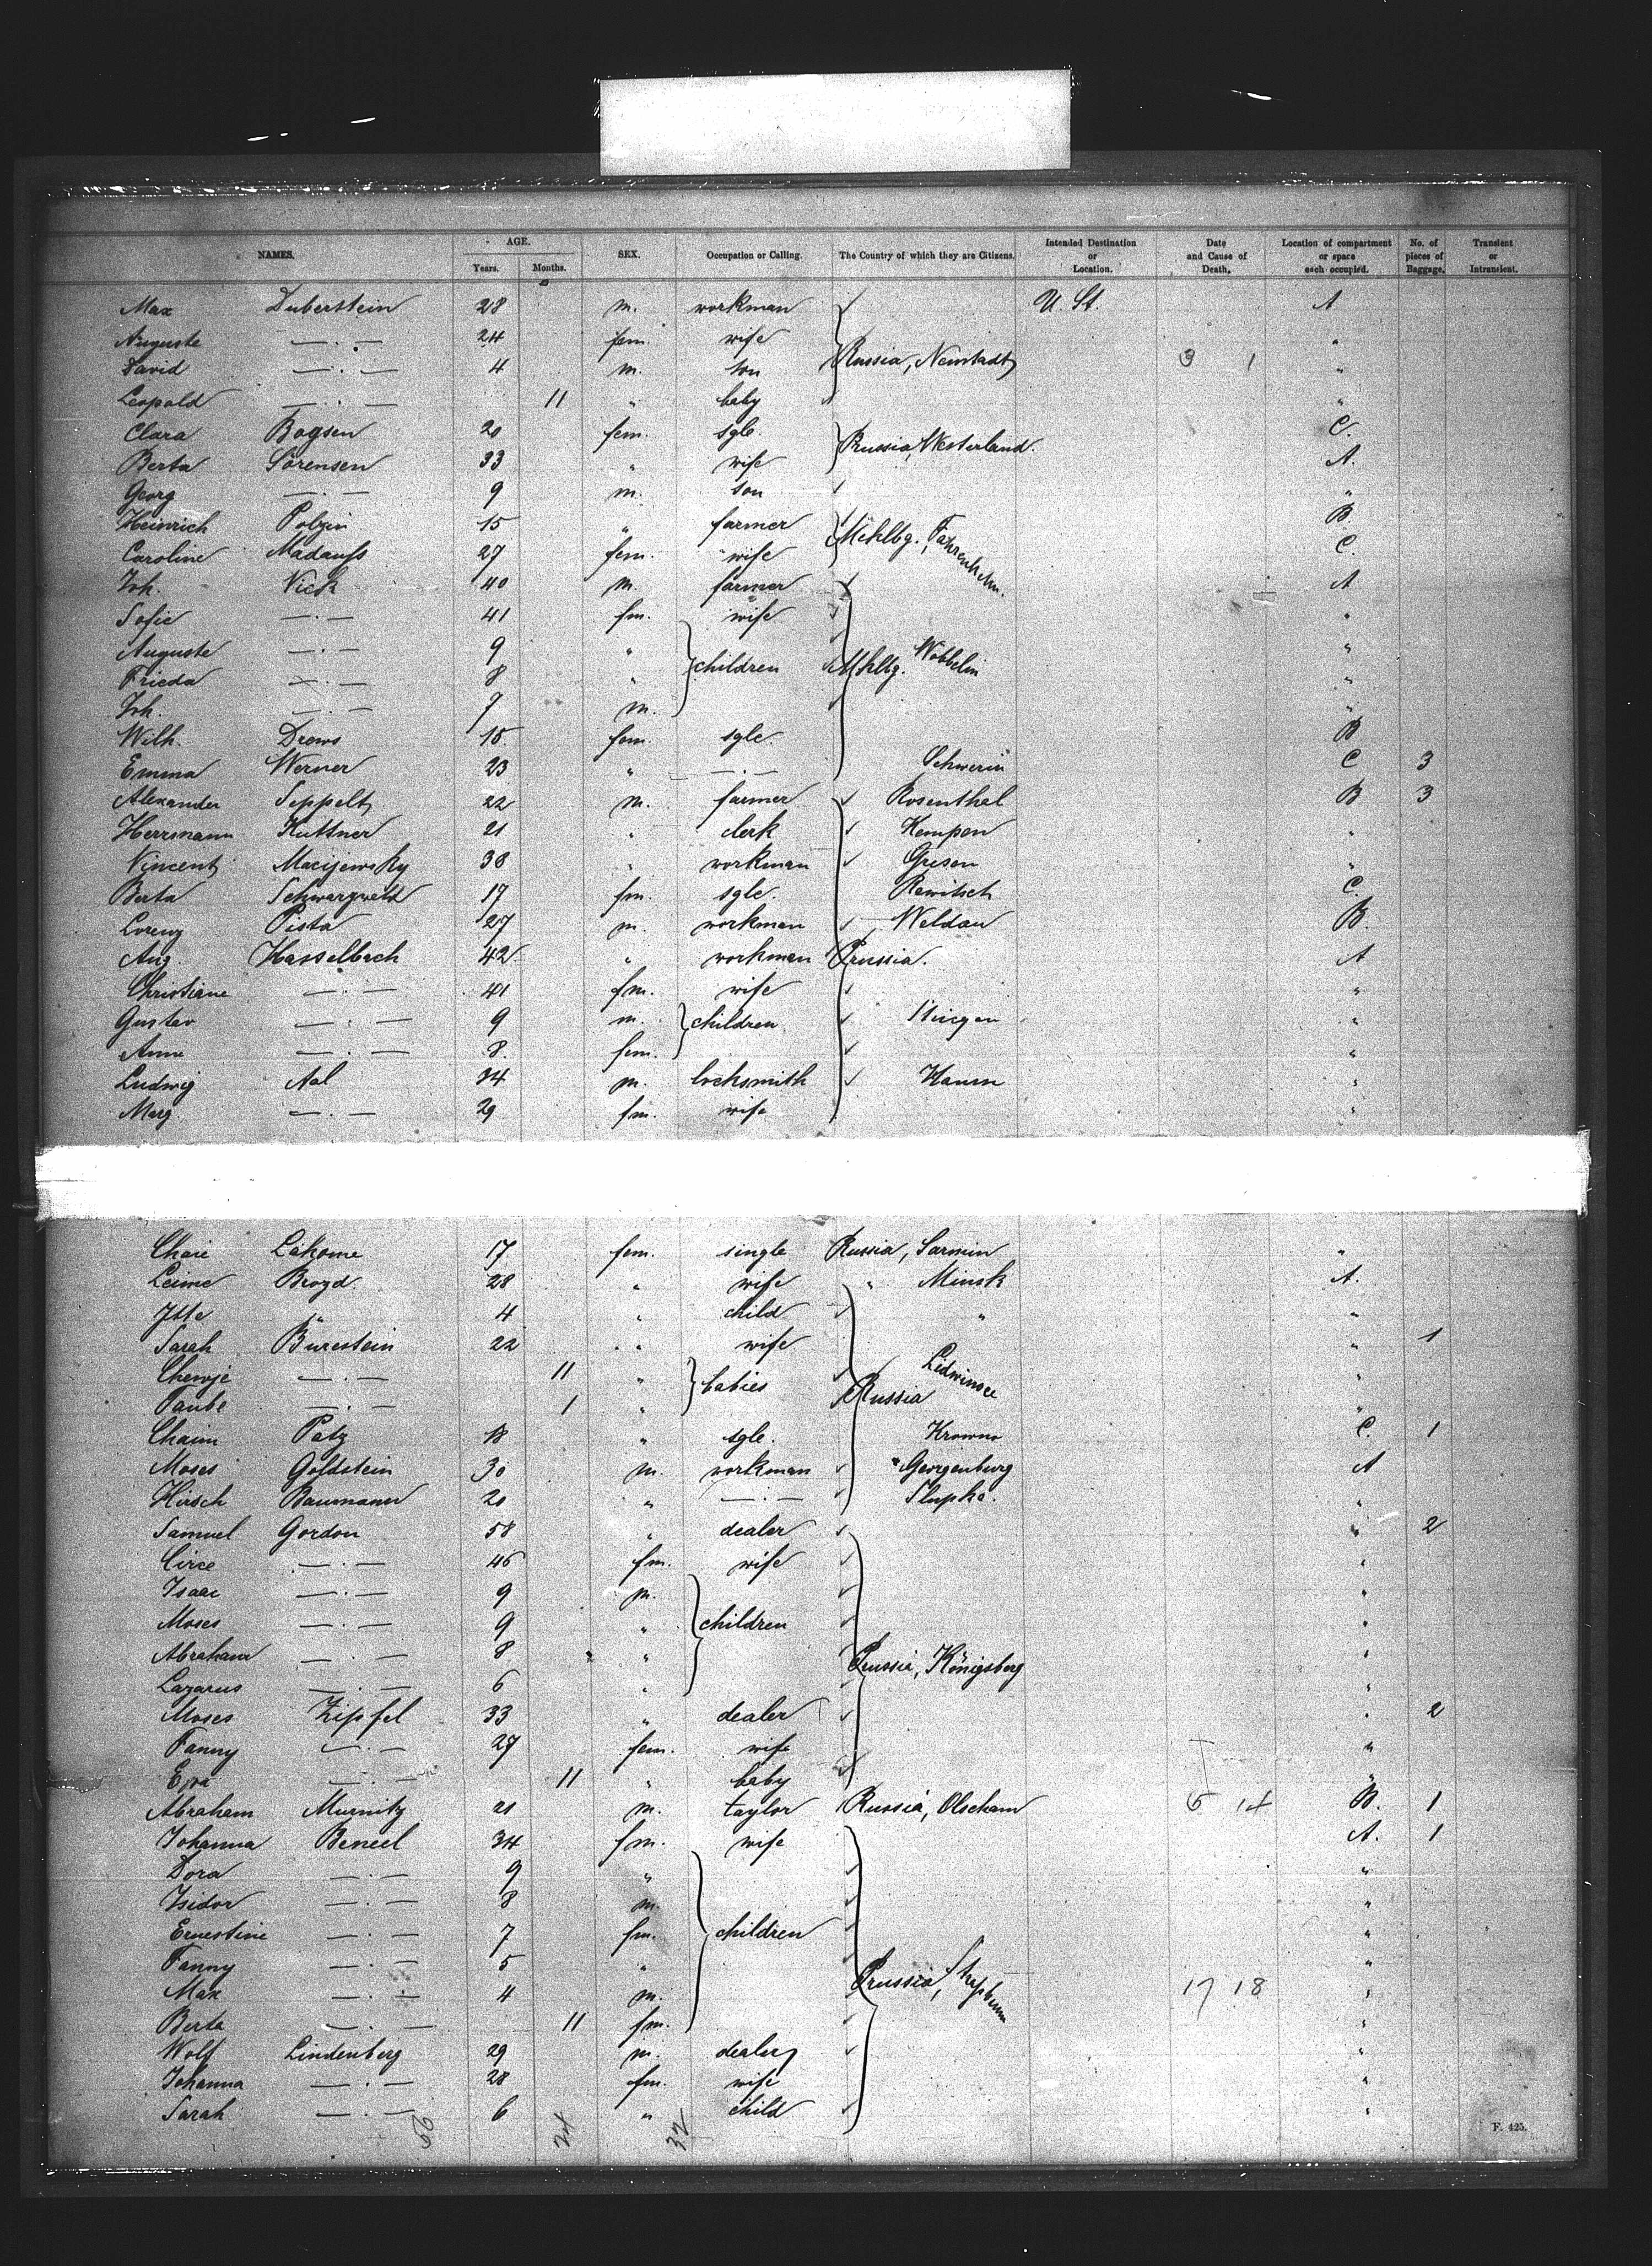 NAMES. AGE. Years. Months. SEX. Occupation or Calling. The Country of which they are Citizens. Intended Destination or Location. Date and Cause of Death. Location of compartment or space each occupied. No. of pieces of Baggage. Transient or Intransient.
Max Duberstein 28 m. workman U. St. A
Auguste —·— 24 fem. wife "
David —·— 4 m. son Russia, Neustadt 3 1 "
Leopold —·— 11 " baby "
Clara Bogsen 20 fem. sgle. C.
Berta Sörensen 33 " wife Russia, Westerland. A.
Georg —·— 9 m. son "
Heinrich Polzin 15 " farmer B
Caroline Madauss 27 fem. wife C.
Joh. Vick 40 m. farmer A
Sofie —·— 41 fm. wife "
Auguste —·— 9 " "
Frieda —·— 8 " children Mklbg. Wöbbelin "
Joh. —·— 7 m. "
Wilh. Drews 18 fem. sgle. B
Emma Werner 23 " —·— Schwerin C 3
Alexander Seppelt 22 m. farmer Rosenthal B 3
Herrmann Kuttner 21 " clerk Kempen "
Vincent Macijewsky 38 " workman Gnesen "
Berta 17 fm. sgle. Rawitsch C.
Lorenz Pista 27 m. workman Weldau B.
Aug. Hasselbach 42 " workman Prussia. A
Christiane —·— 41 fm. wife "
Gustav —·— 9 m. children "
Anna —·— 8. fem. "
Ludwig Aal 34 m. locksmith "
Marg. —·— 29 fm. wife "
Chaie Lakome 17 fem. single Russia, Sarmin "
Leime Brozd. 28 " wife " Minsk A.
Itte " 4 " child " "
Sarah Burestein 22 " wife " 1
Chewje —·— 11 " babies "
Taube —·— 1 " Russia "
Chaim Patz 18 " sgle. Krowno C. 1
Moses Goldstein 30 m. workman " Georgenburg A
Hirsch Baumann 20 " —·— Slupka. "
Samuel Gordon 58 " dealer " 2
Circe —·— 46 fm. wife "
Isaac —·— 9 m. "
Moses —·— 9 " children "
Abraham —·— 8 " Prussia, Königsberg "
Lazarus —·— 6 " "
Moses Zipfel 33 " dealer " 2
Fanny —·— 27 fem. wife "
—·— 11 " baby "
Abraham Murnitz 21 m. taylor Russia, Olscham 5 14 B. 1
Johanna Beneel 34 fm. wife A. 1
Dora —·— 9 " "
Isidor —·— 8 m. "
Ernestine —·— 7 fm. children "
Fanny —·— 5 " "
Max —·— 4 m. Prussia, 17 18 "
Berta —·— 11 fm. "
Wolf Lindenberg 29 m. dealer "
Johanna —·— 28 fm. wife "
Sarah —·— 6 " child "
24 32
F. 425.